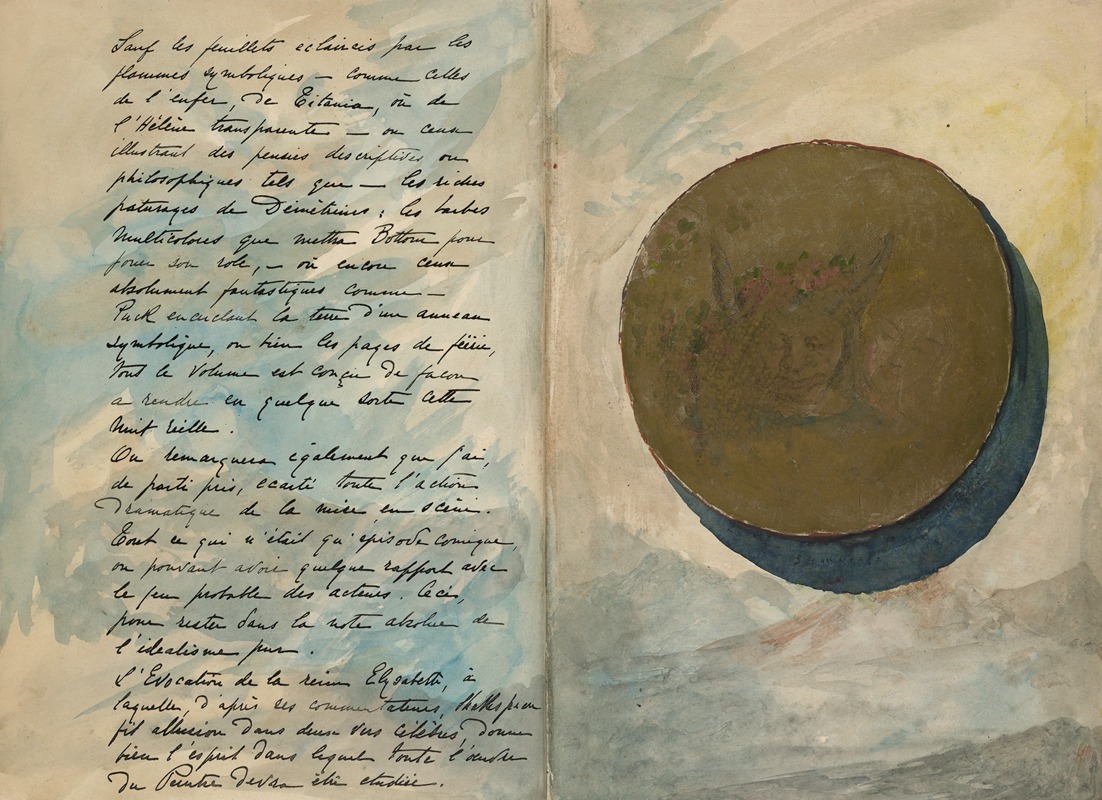 Sauf les feuillets éclaircis par les
flammes symboliques — comme celles
de l'enfer, de Titania, ou de
l'Hélène transparente — ou ceux
illustrant des pensées descriptives ou
philosophiques tels que — les riches
paturages de Démétrius ; les barbes
multicolores que mettra Bottom pour
jouer son role, — ou encore ceux
absolument fantastiques comme —
Puck encerclant la terre d'un anneau
symbolique, ou bien les pages de féerie,
tout le volume est conçu de façon
a rendre en quelque sorte cette
Nuit réelle.
On remarquera également que j'ai,
de parti pris, écarté toute l'action
dramatique de la mise en scène.
Tout ce qui n'était qu'épisode comique,
ou pouvant avoir quelque rapport avec
le jeu probable des acteurs. Ceci,
pour rester dans la note absolue de
l'idealisme pur.
L'Evocation de la reine Elysabeth, à
laquelle, d'après ses commentateurs, Shakespeare
fit allusion dans deux vers célèbres, donne
bien l'esprit dans lequel toute l'œuvre
du Peintre devra être etudiée.